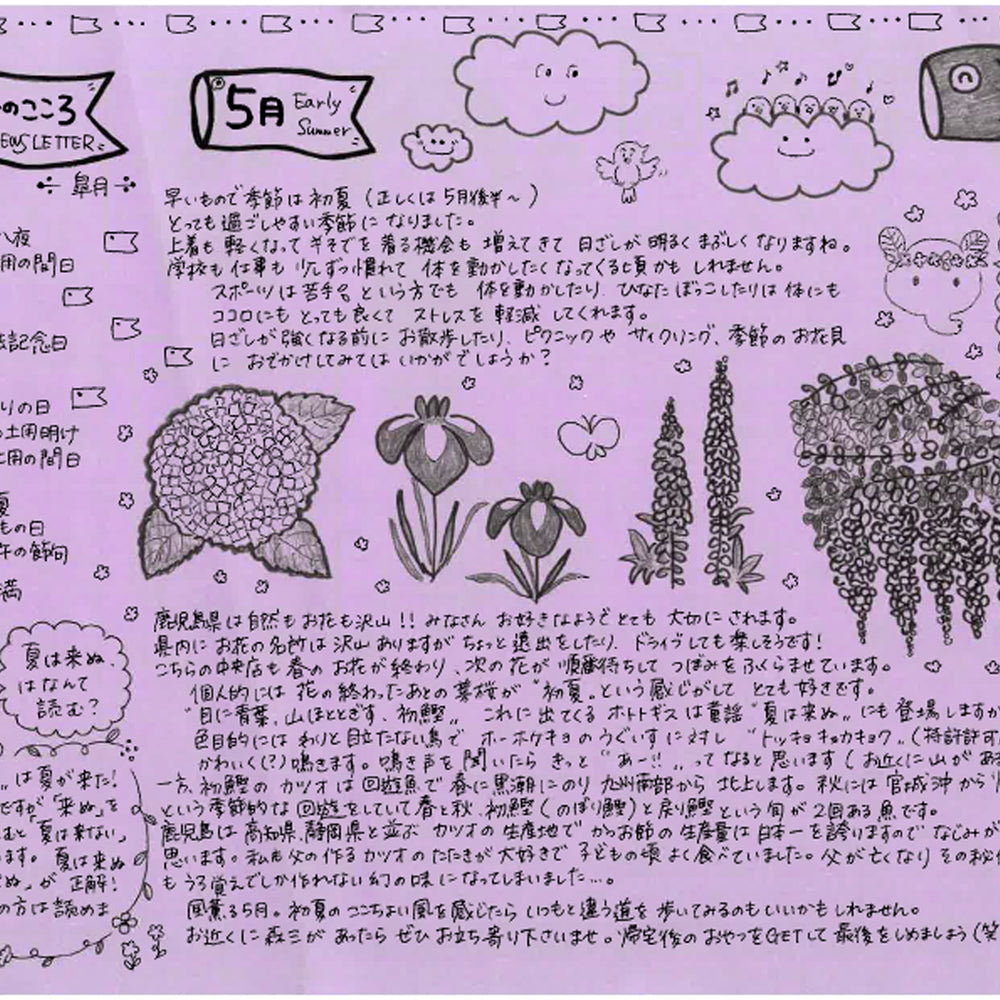 のこころ
NEWSLETTER
皐月
八夜
用の間日
法記念日
りの日
土用明け
土用の間日
夏
もの日
午の節句
満
夏は来ぬ、
はなんて
読む?
„は夏が来た!
ですが「来ぬ」を
むと"夏は来ない„
ます。夏は来ぬ
ぬ„が 正解!
の方は読めま
5月 Early
Summer
早いもので季節は初夏(正しくは5月後半〜)
とっても過ごしやすい季節になりました。
上着も軽くなって半そでを着る機会も増えてきて日ざしが明るくまぶしくなりますね。
学校も仕事も少しずつ慣れて 体を動かしたくなってくる頃かもしれません。
スポーツは苦手。という方でも 体を動かしたり、ひなたぼっこしたりは体にも
ココロにもとっても良くて ストレスを軽減してくれます。
日ざしが強くなる前に お散歩したり、ピクニックや サイクリング、季節のお花見
に おでかけしてみては いかがでしょうか?
鹿児島県は自然もお花も沢山!!みなさん お好きなようでとても 大切にされます。
県内にお花の名所は沢山ありますがちょっと遠出をしたり、ドライブしても楽しそうです!
こちらの中央店も春のお花が終わり、次の花が 順番待ちして つぼみをふくらませています。
個人的には 花の終わったあとの葉桜が "初夏„という感じがして とても好きです。
"目に青葉、山ほととぎす、初鰹„ これに出てくる ホトトギスは童謡"夏は来ぬ„にも登場しますが
色目的には わりと目立たない鳥で ホーホケキョのうぐいすに対し "トッキョキョカキョク„(特許許
かわいく(?)鳴きます。鳴き声を聞いたら きっと "あー!!„ってなると思います(お近くに山があ
一方、初鰹の カツオは 回遊魚で春に黒潮にのり 九州南部から 北上します。秋には宮城沖から
という季節的な回遊をしていて春と秋、初鰹(のぼり鰹)と戻り鰹という旬が2回ある魚です。
鹿児島は 高知県、静岡県と並ぶ カツオの生産地で かつお節の生産量は日本一を誇りますので なじみが
思います。私も父の作るカツオのたたきが大好きで 子どもの頃よく食べていました。父が亡くなり その秘
もうろ覚えでしか作れない幻の味になってしまいました…。
風薫る5月。初夏のここちよい風を感じたら いつもと違う道を 歩いてみるのもいいかもしれません。
お近くに森三が あったら ぜひお立ち寄り下さいませ。帰宅後のおやつをGETして 最後をしめましょう(笑